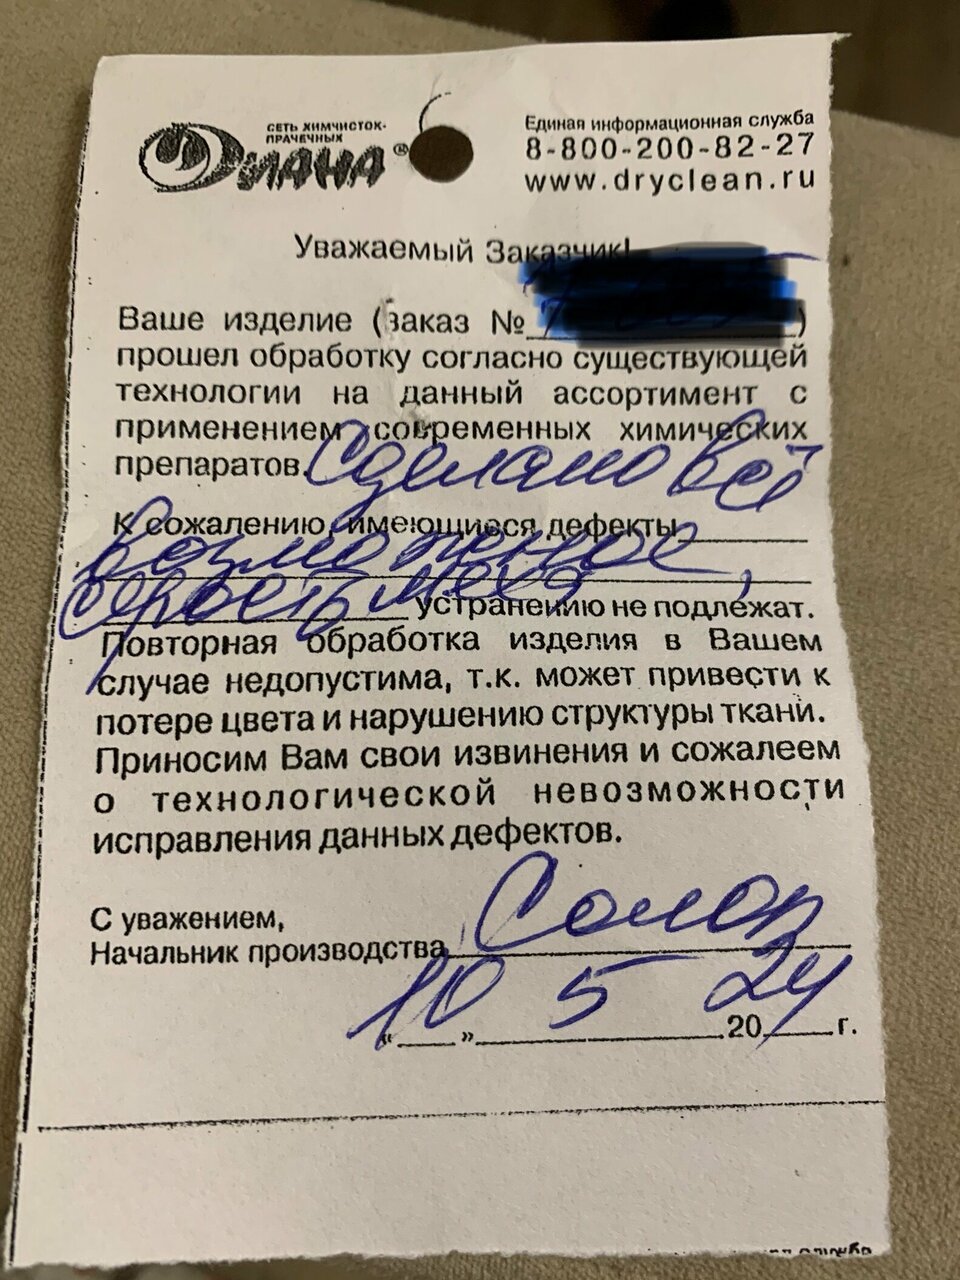 СЕТЬ ХИМЧИСТОК-
ПРАЧЕЧНЫХ
ДИАНА®
Единая информационная служба
8-800-200-82-27
www.dryclean.ru
Уважаемый Заказчик!
Ваше изделие (заказ № )
прошел обработку согласно существующей
технологии на данный ассортимент с
применением современных химических
препаратов. Сделано всё
К сожалению, имеющиеся дефекты
возможное,
серость меха устранению не подлежат.
Повторная обработка изделия в Вашем
случае недопустима, т.к. может привести к
потере цвета и нарушению структуры ткани.
Приносим Вам свои извинения и сожалеем
о технологической невозможности
исправления данных дефектов.
С уважением,
Начальник производства
"10" 5 2024 г.